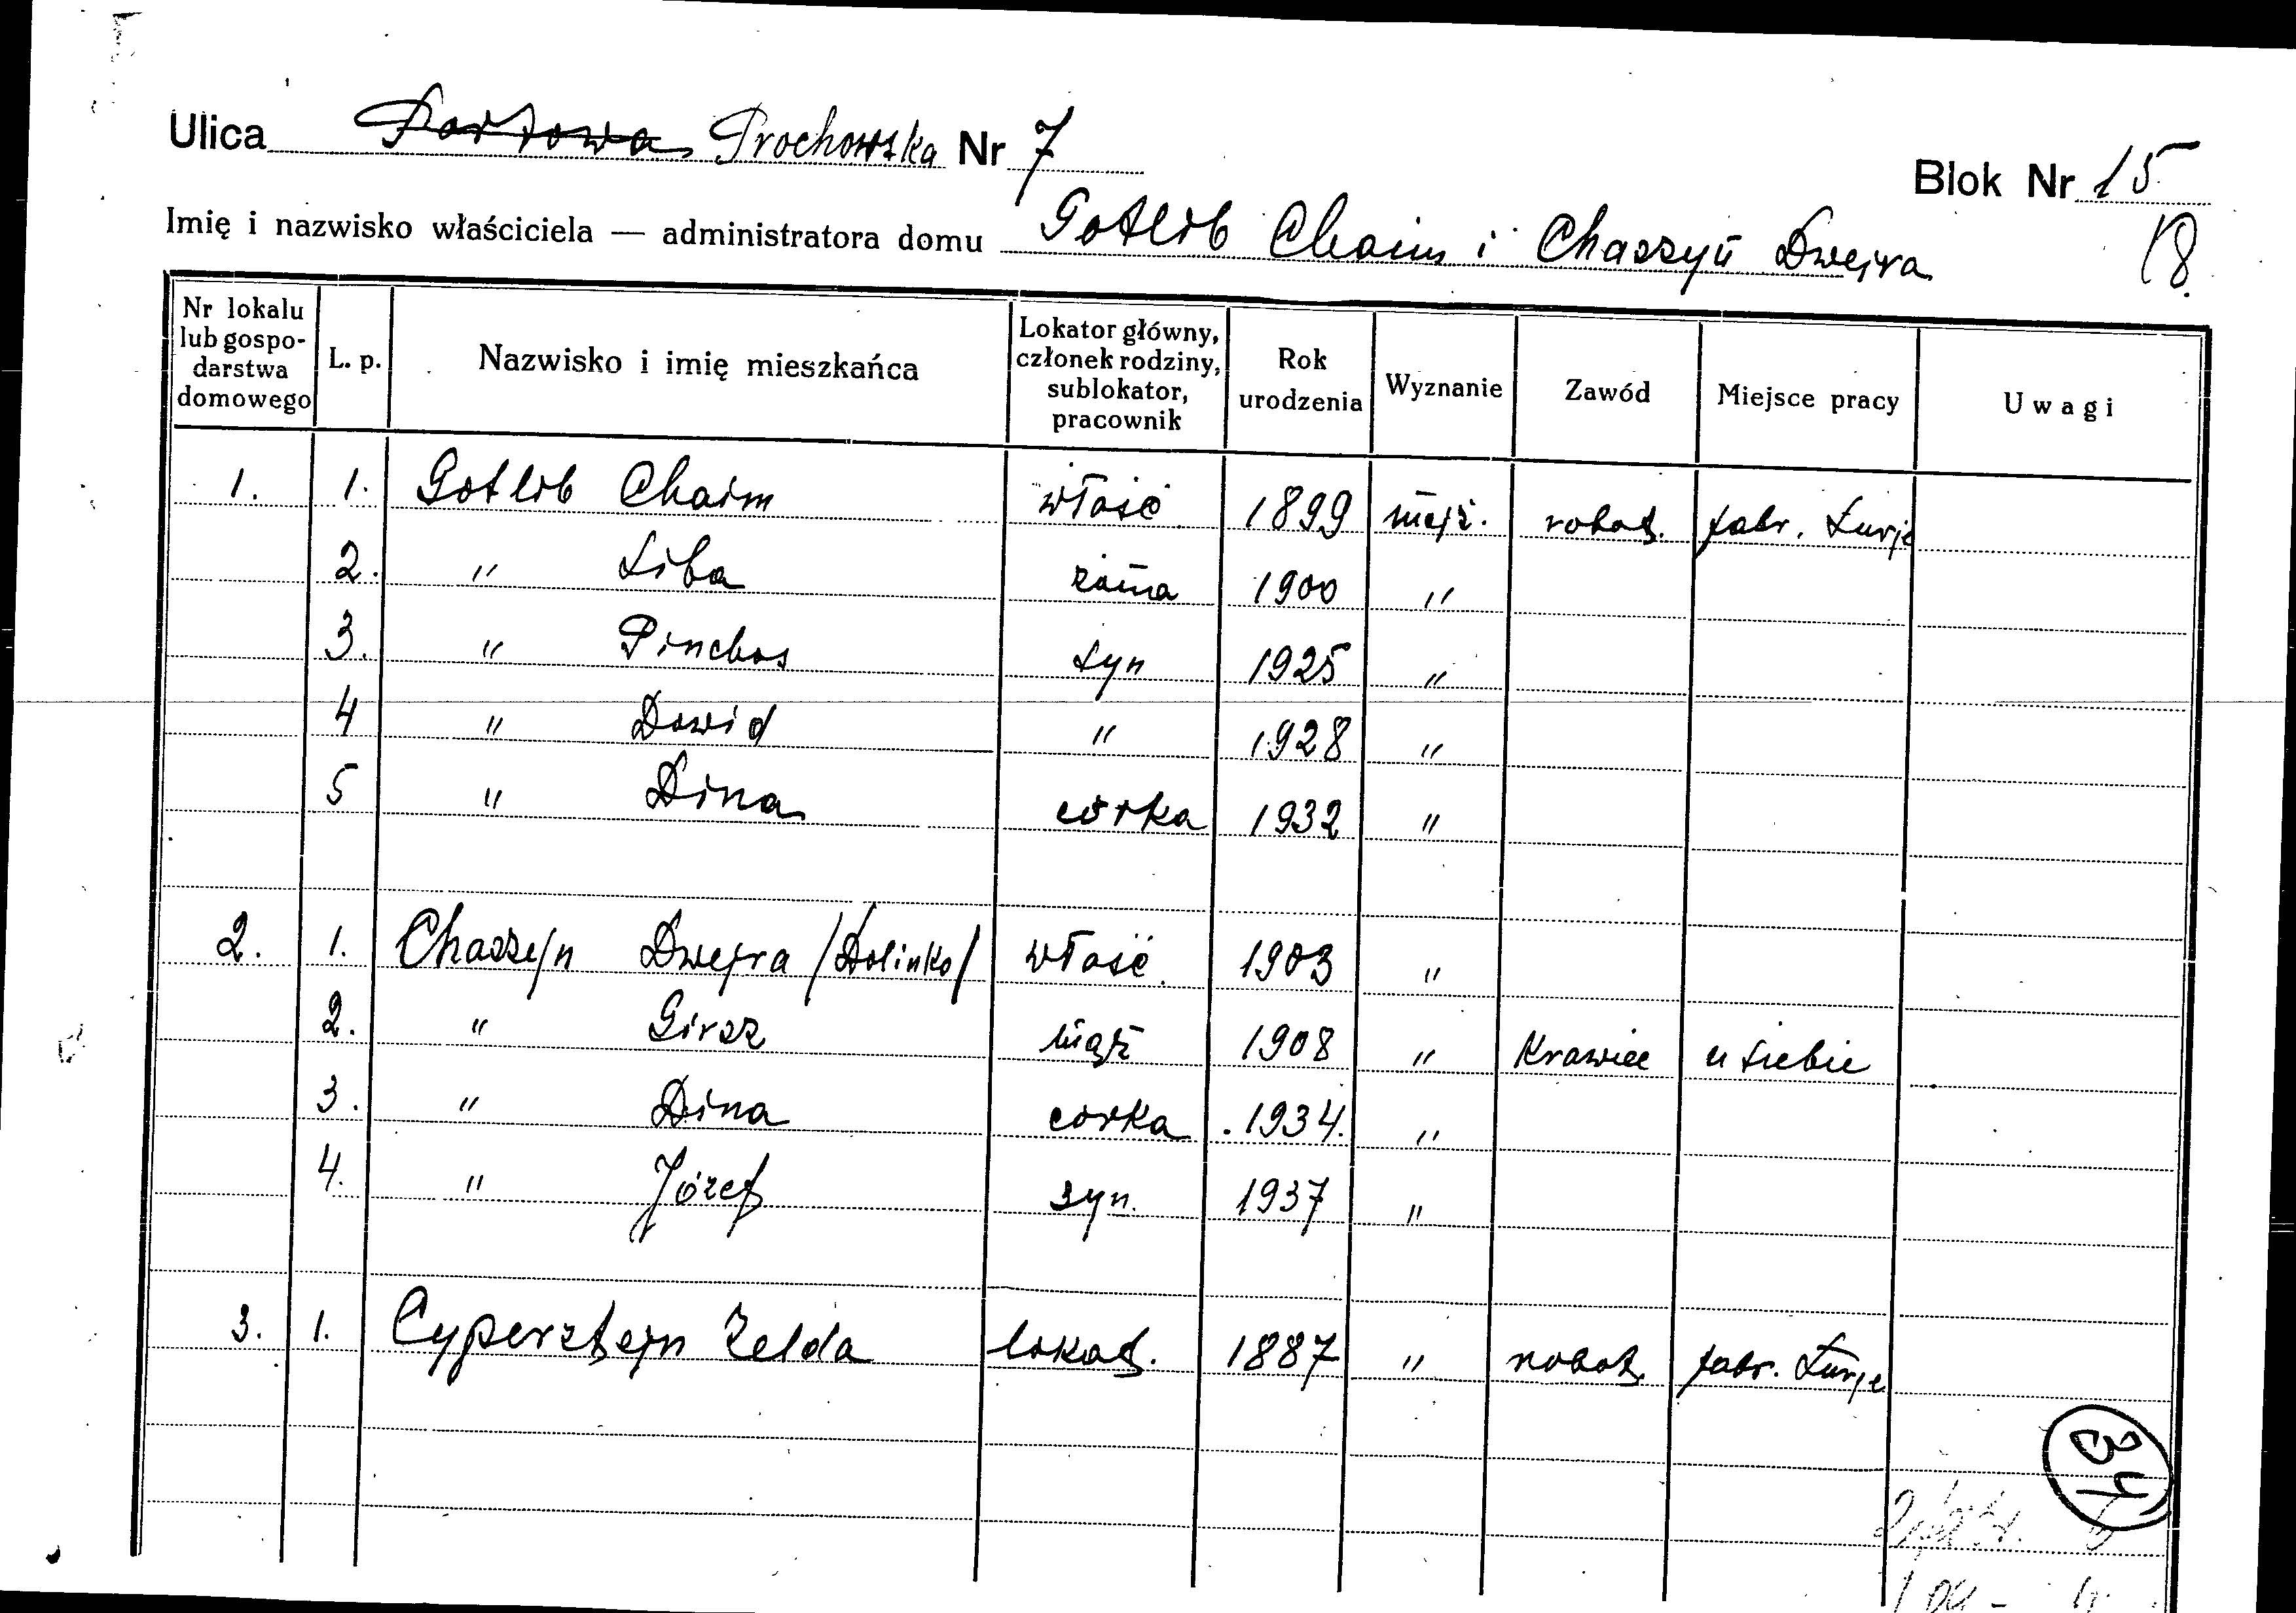 Ulica Portowa Prochowska Nr 7
Blok Nr 15
18.
Imię i nazwisko właściciela — administratora domu Gotlib Chaim i Chaszyn Dwejra
Nr lokalu lub gospodarstwa domowego | L. p. | Nazwisko i imię mieszkańca | Lokator główny, członek rodziny, sublokator, pracownik | Rok urodzenia | Wyznanie | Zawód | Miejsce pracy | Uwagi
1. 1. Gotlib Chaim właść. 1899 mojż. robot. fabr. Lurje
2. " Liba żona 1900 "
3. " Pinchos syn 1925 "
4 " Dawid " 1928 "
5 " Dina córka 1932 "
2. 1. Chaszejn Dwejra /Dolinko/ właść. 1903 "
2. " Girsz mąż 1908 " Krawiec u siebie
3. " Dina córka 1934. "
4. " Józef syn. 1937 "
3. 1. Cypersztejn Zelda lokat. 1887 " robot. fabr. Lurje
34